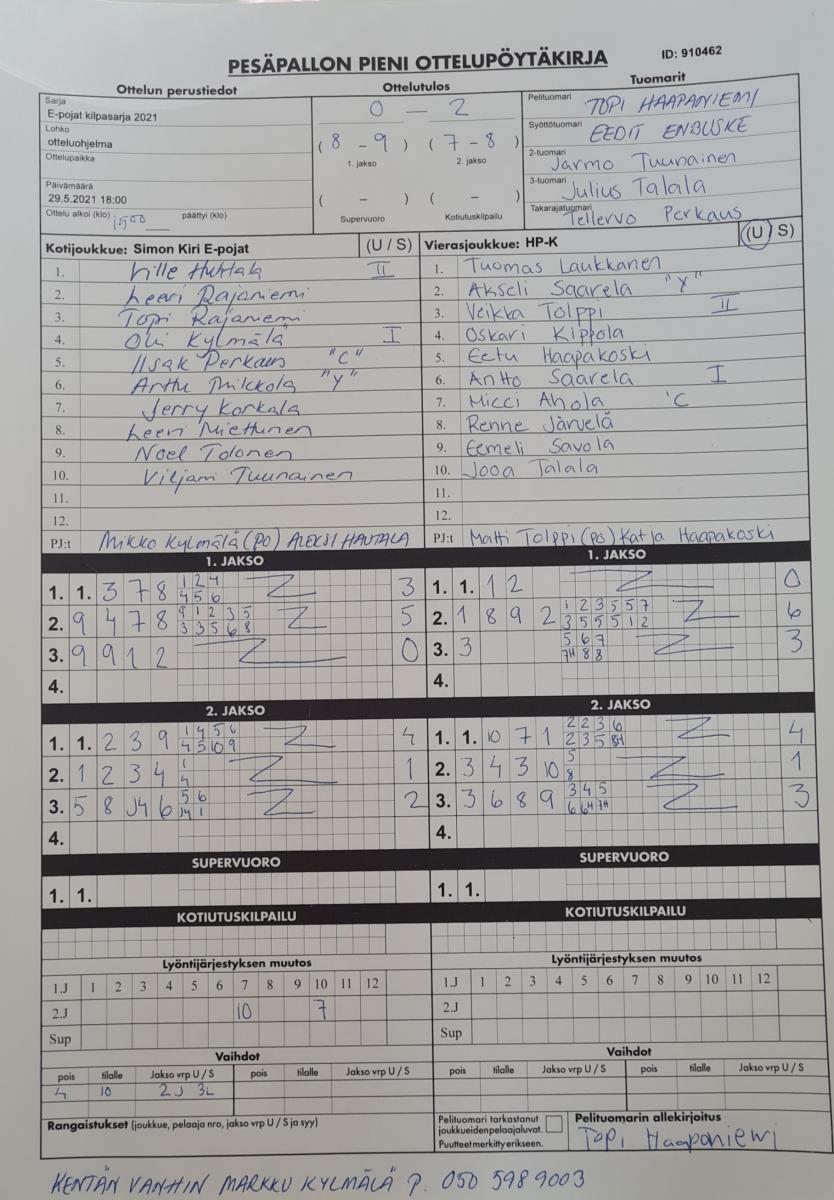 PESÄPALLON PIENI OTTELUPÖYTÄKIRJA ID: 910462
Ottelun perustiedot Ottelutulos Tuomarit
Sarja
E-pojat kilpasarja 2021
Lohko
otteluohjelma
Ottelupaikka
Päivämäärä
29.5.2021 18:00
Ottelu alkoi (klo) päättyi (klo)
0 - 2
( 8 - 9 ) ( 7 - 8 )
1. jakso 2. jakso
( - ) ( - )
Supervuoro Kotiutuskilpailu
Pelituomari TOPI HAAPANIEMI
Syöttötuomari EEDIT ENBUSKE
2-tuomari Jarmo Tuunainen
3-tuomari Julius Talala
Takarajatuomari Tellervo Perkaus
Kotijoukkue: Simon Kiri E-pojat (U / S)
1. Ville Huhtala II
2. Leevi Rajaniemi
3. Topi Rajaniemi
4. Oli Kylmälä I
5. Iisak Perkaus "C"
6. Arttu Mikkola "Y"
7. Jerry Korkala
8. Leevi Miettunen
9. Noel Tolonen
10. Viljami Tuunainen
11.
12.
PJ:t Mikko Kylmälä (PO) ALEKSI HAUTALA
Vierasjoukkue: HP-K (U / S)
1. Tuomas Laukkanen
2. Akseli Saarela "Y"
3. Veikka Tolppi II
4. Oskari Kippola
5. Eetu Haapakoski
6. Antto Saarela I
7. Micci Ahola 'C
8. Renne Järvelä
9. Eemeli Savola
10. Jooa Talala
11.
12.
PJ:t Matti Tolppi (po) Katja Haapakoski
1. JAKSO
1. 1. 3 7 8 1 2 4 3
4 5 6
2. 9 4 7 8 9 1 2 3 5 5
3 3 5 6 8
3. 9 9 1 2 0
4.
2. JAKSO
1. 1. 2 3 9 1 4 5 6 4
4 5 10 9
2. 1 2 3 4 1 1
4
3. 5 8 J4 6 5 6 2
J4 1
4.
SUPERVUORO
1. 1.
KOTIUTUSKILPAILU
Lyöntijärjestyksen muutos
1.J 1 2 3 4 5 6 7 8 9 10 11 12
2.J 10 7
Sup
Vaihdot
pois tilalle Jakso vrp U / S pois tilalle Jakso vrp U / S
4 10 2J 3L
Rangaistukset (joukkue, pelaaja nro, jakso vrp U / S ja syy)
1. JAKSO
1. 1. 1 2 0
2. 1 8 9 2 1 2 3 5 5 7 6
3 5 5 5 1 2
3. 3 5 6 7 3
7H 8 8
4.
2. JAKSO
1. 1. 10 7 1 2 2 3 6 4
2 3 5 8H
2. 3 4 3 10 5 1
8
3. 3 6 8 9 3 4 5 3
6 6H 7H
4.
SUPERVUORO
1. 1.
KOTIUTUSKILPAILU
Lyöntijärjestyksen muutos
1.J 1 2 3 4 5 6 7 8 9 10 11 12
2.J
Sup
Vaihdot
pois tilalle Jakso vrp U / S pois tilalle Jakso vrp U / S
Pelituomari tarkastanut
joukkueidenpelaajaluvat.
Puutteet merkitty erikseen.
Pelituomarin allekirjoitus
Topi Haapaniemi
KENTÄN VANHIN MARKKU KYLMÄLÄ P. 050 598 9003